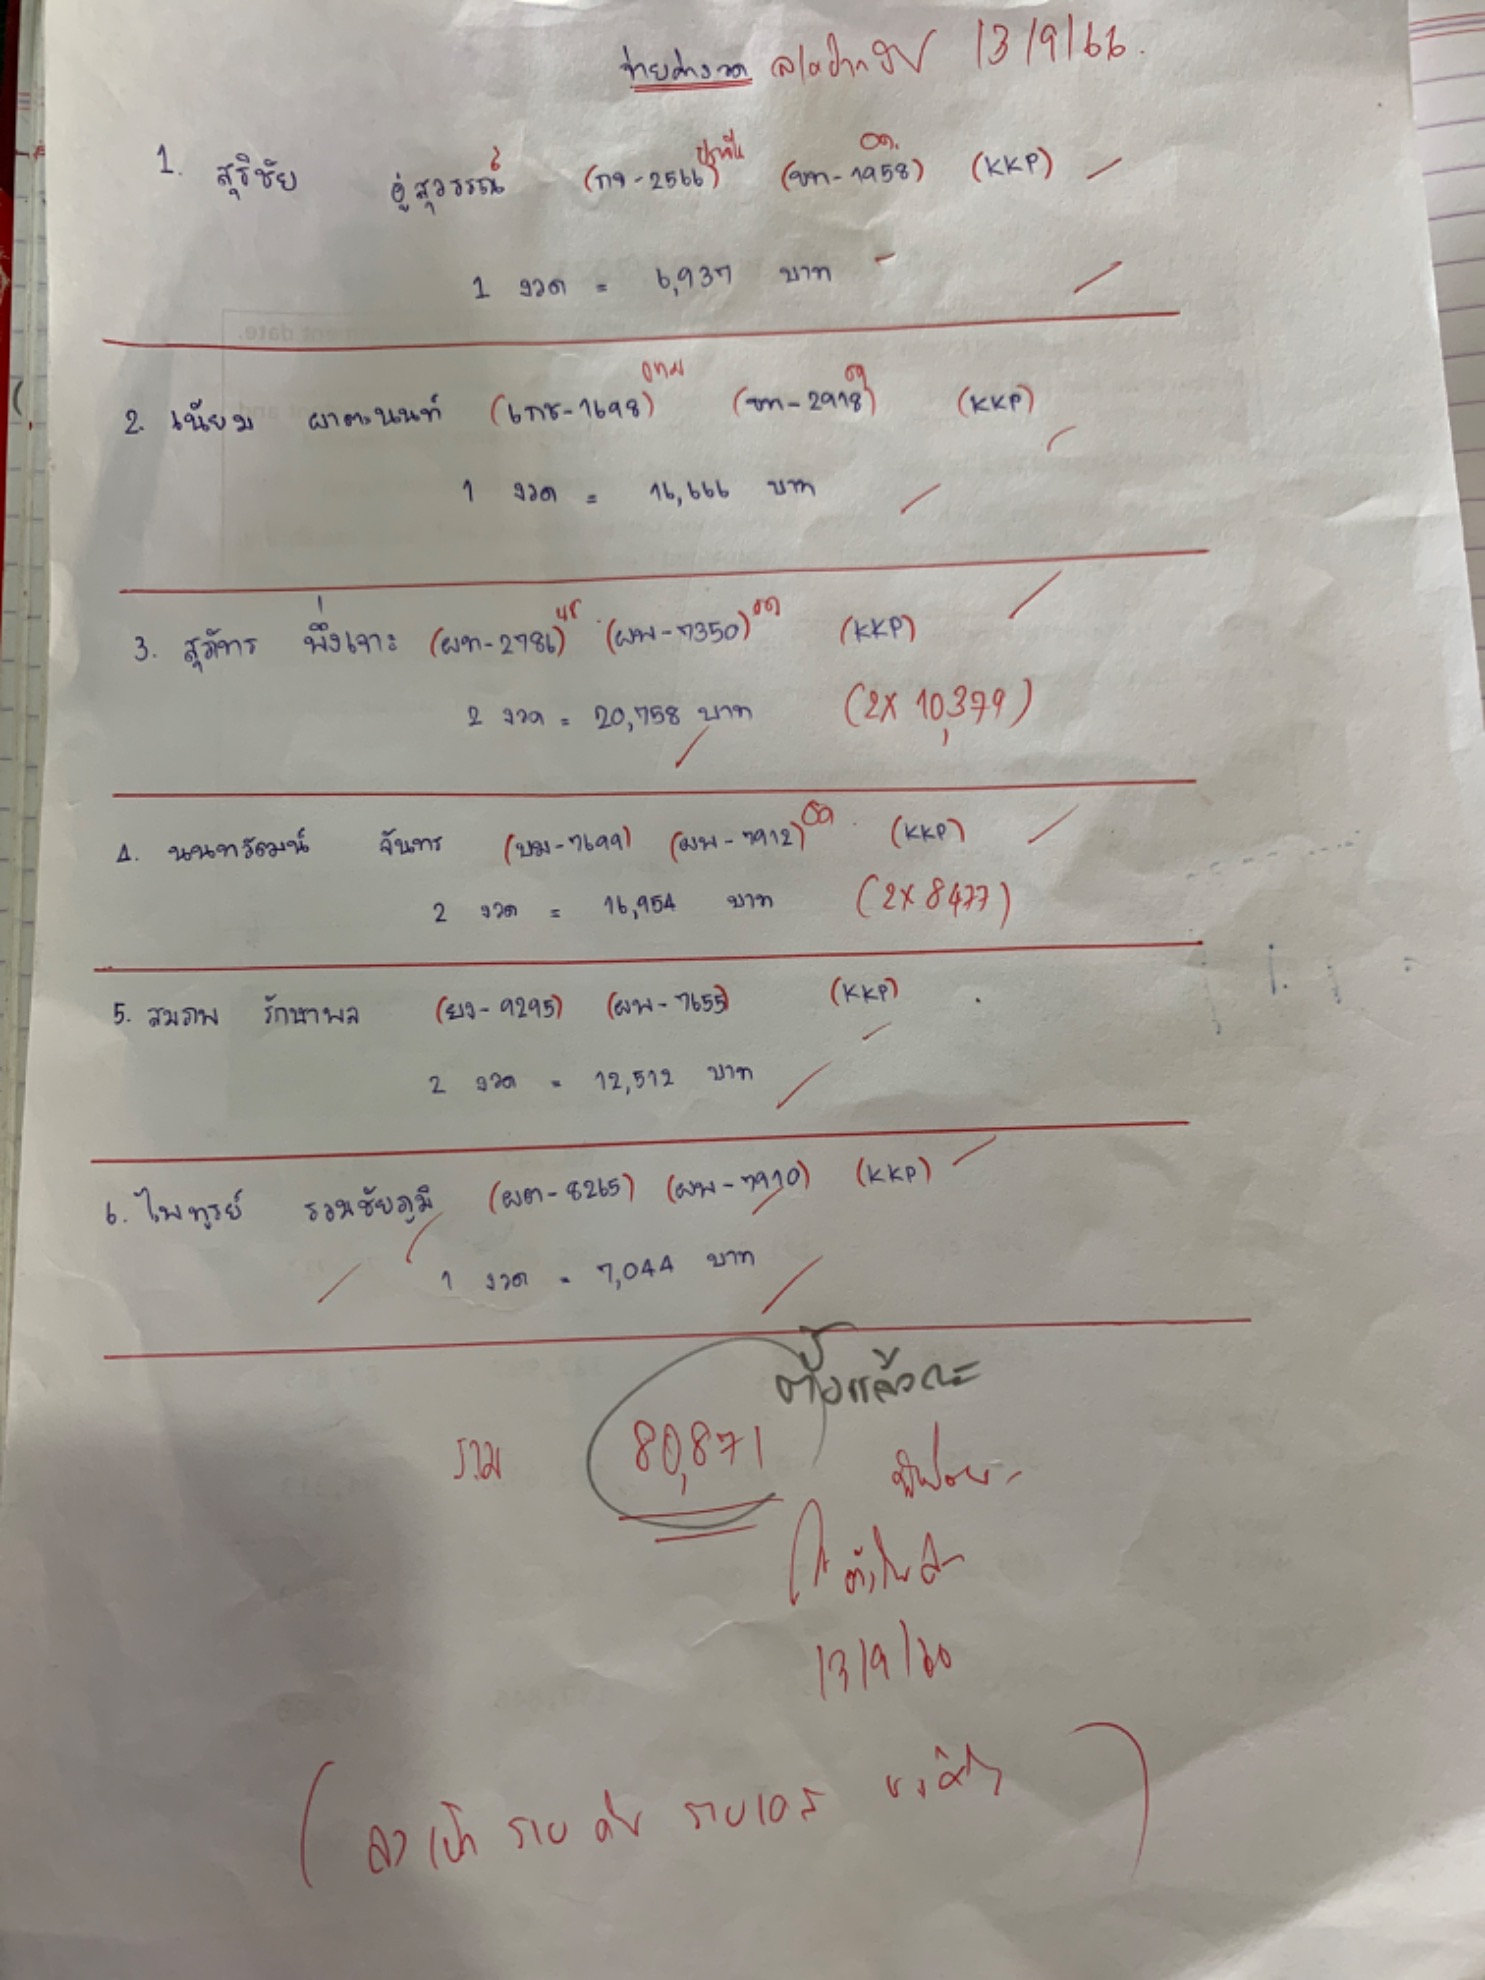 จ่ายค่างวด 13/9/66.
1. สุริชัย อู่สุวรรณ์ (กจ-2566) (ขท-1958) (KKP)
1 งวด = 6,937 บาท
2. เนียม ผาตะนนท์ (6กช-1698) (ขท-2918) (KKP)
1 งวด = 16,666 บาท
3. สุภัทร พึ่งเจาะ (ผท-2786) (ผพ-7350) (KKP)
2 งวด = 20,758 บาท (2x 10,379)
4. นนทวัฒน์ จันทร (บม-7699) (ผพ-7912) (KKP)
2 งวด = 16,954 บาท (2x 8477)
5. สมภพ รักษาพล (ยง-9295) (ผพ-7655) (KKP)
2 งวด = 12,512 บาท
6. ไพฑูรย์ รวนชัยภูมิ (ผต-8265) (ผพ-7910) (KKP)
1 งวด = 7,044 บาท
ตั้งแล้วนะ
รวม 80,871
13/9/66